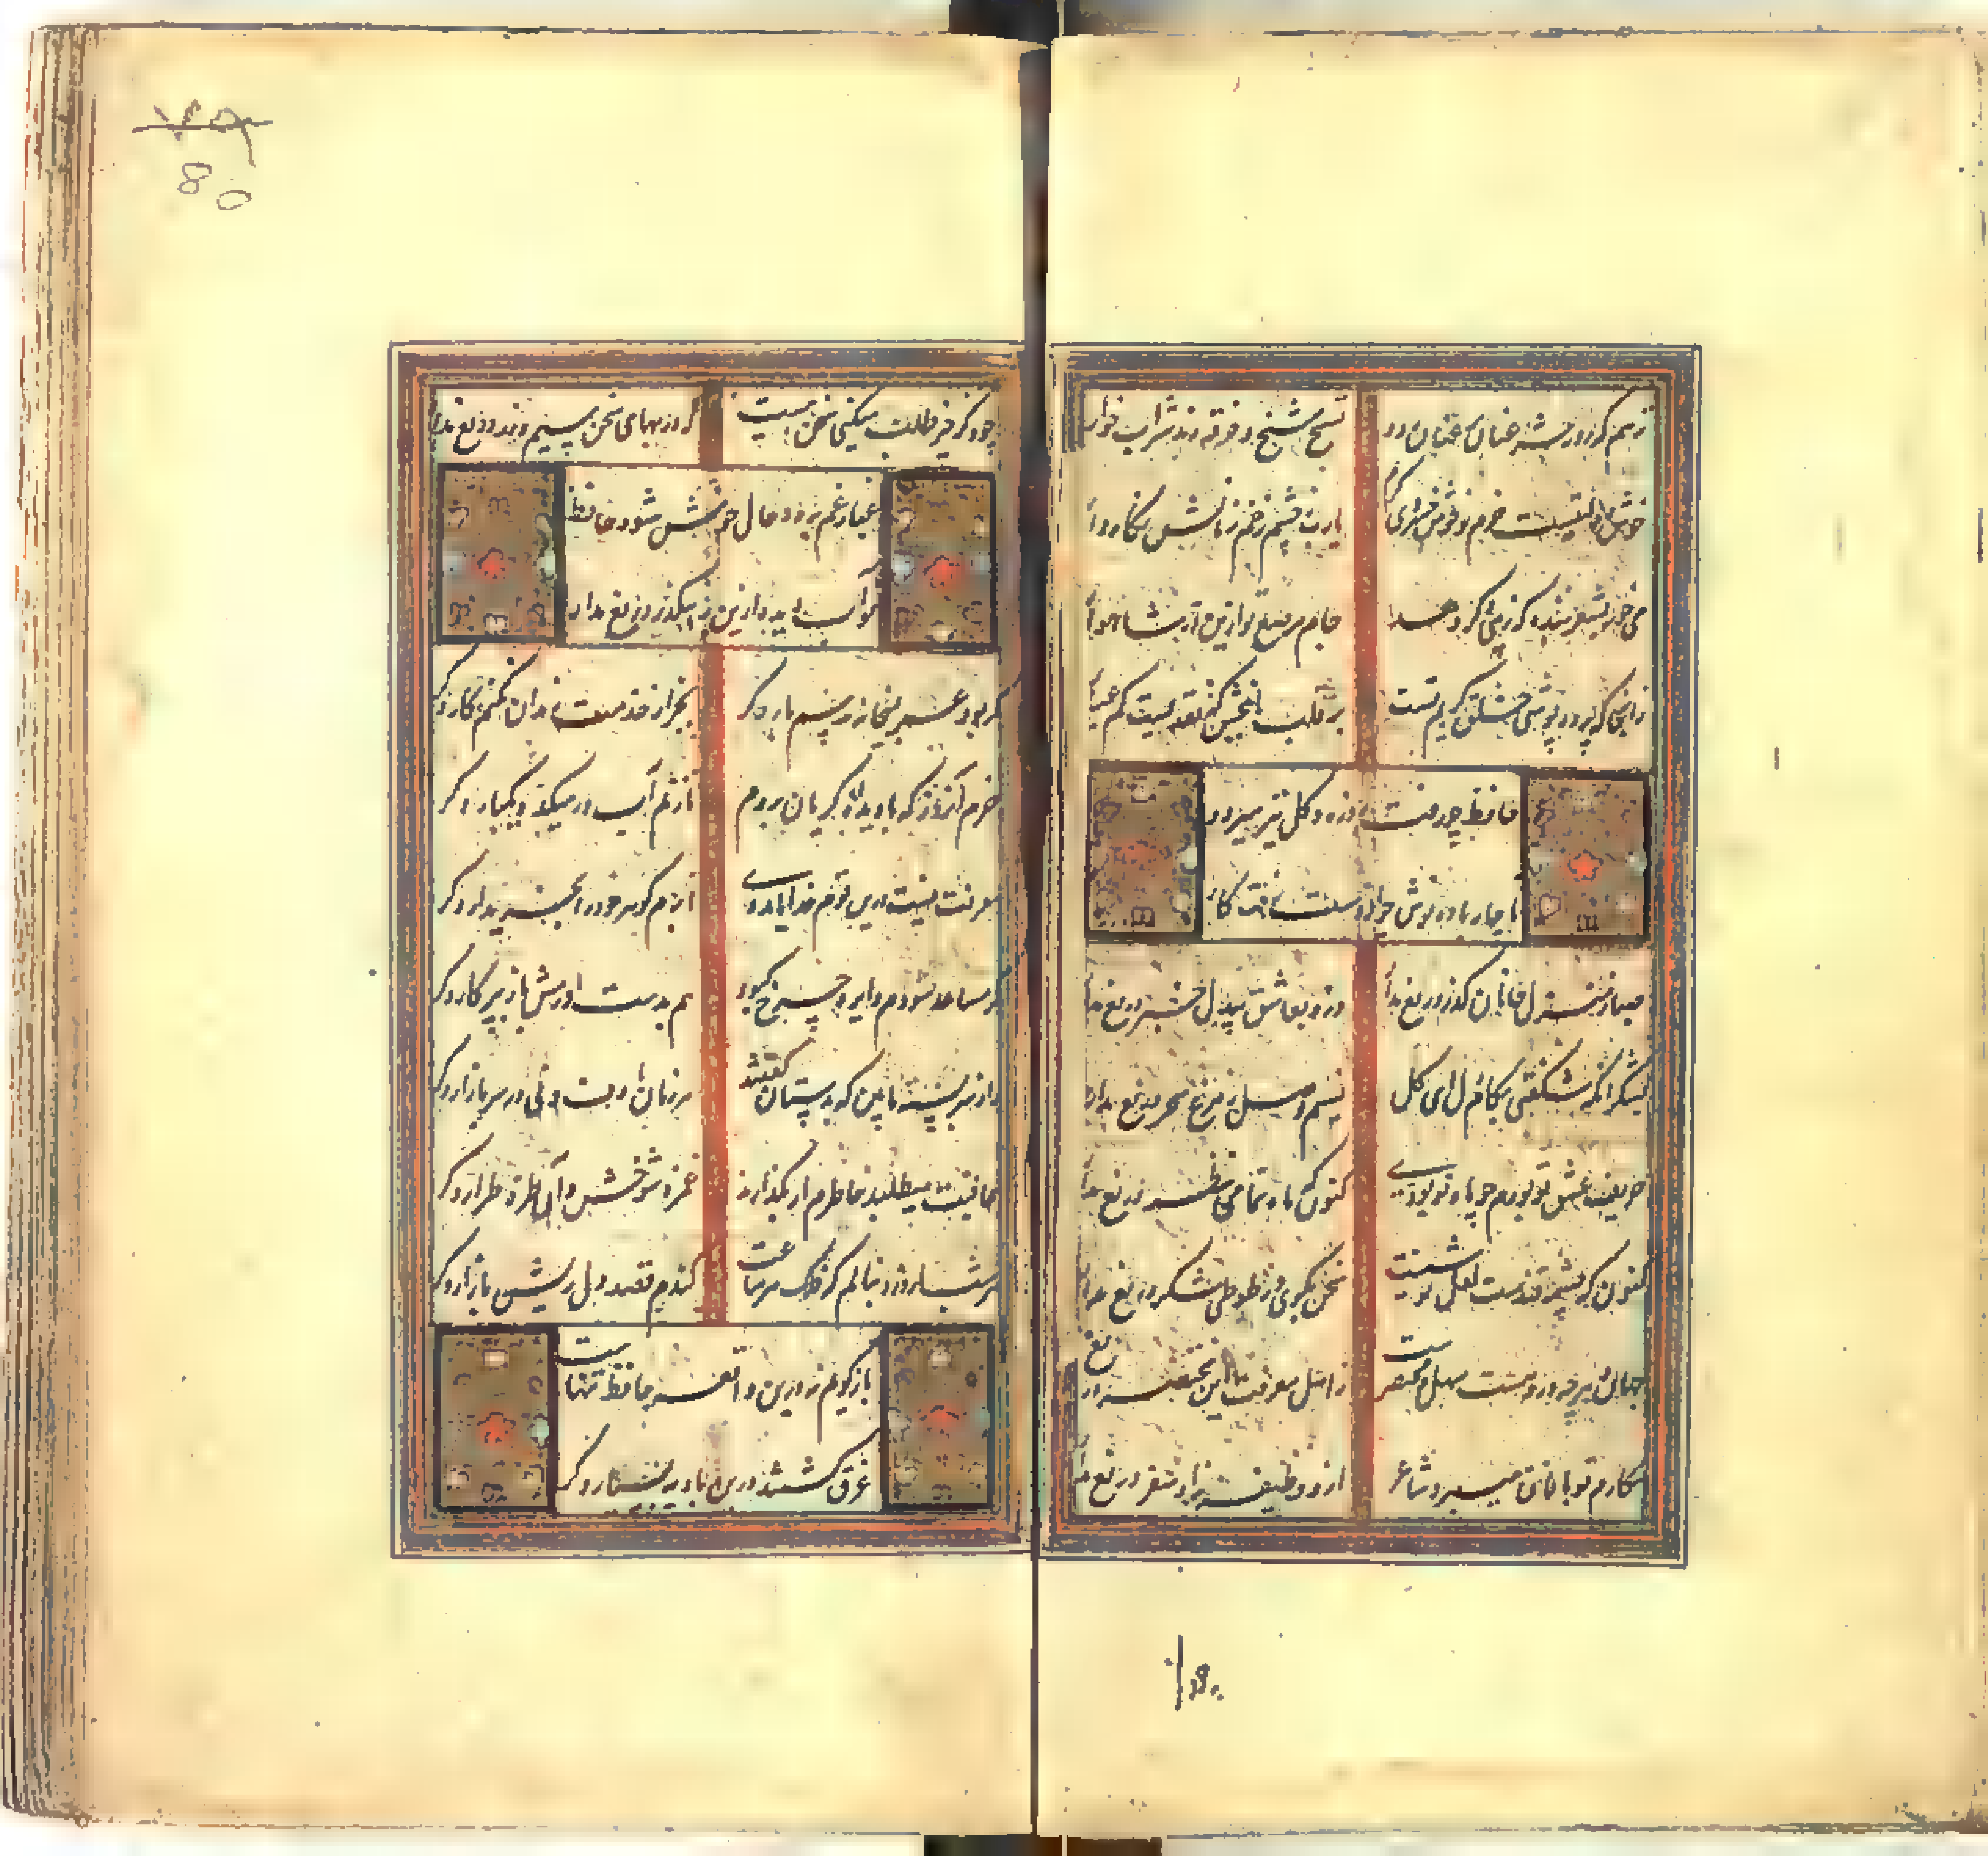 ترسم که روز حشر عنان بر عنان رود تسبیح شیخ و خرقه رند شراب خوار
خوش دولتیست خرم و خوش خسروی کریم یارب ز چشم زخم زمانش نگاه دار
می خور بشعر بنده که زیبی دگر دهد جام مرصع تو ازین در شاهوار
زانجا که پرده پوشی خلق کریم تست بر قلب ما ببخش که نقدیست کم عیار
حافظ چو رفت روزه و گل نیز میرود
ناچار باده نوش که از دست رفت کار
صبا ز منزل جانان گذر دریغ مدار وزو بعاشق بیدل خبر دریغ مدار
بشکر آنکه شکفتی بکام دل ای گل نسیم وصل ز مرغ سحر دریغ مدار
حریف عشق تو بودم چو ماه نو بودی کنون که ماه تمامی نظر دریغ مدار
کنون که چشمه قندست لعل نوشینت سخن بگوی و ز طوطی شکر دریغ مدار
جهان و هرچه درو هست سهل و مختصرست ز اهل معرفت این مختصر دریغ مدار
مکارم تو بآفاق میبرد شاعر ازو وظیفه و زاد سفر دریغ مدار
80
چو ذکر خیر طلب میکنی سخن اینست که در بهای سخن سیم و زر دریغ مدار
غبار غم برود حال خوش شود حافظ
تو آب دیده ازین رهگذر دریغ مدار
گر بود عمر بمیخانه رسم بار دگر بجز از خدمت رندان نکنم کار دگر
خرم آنروز که با دیده گریان بروم تا زنم آب در میکده یکبار دگر
معرفت نیست درین قوم خدایا مددی تا برم گوهر خود را بخریدار دگر
گر مساعد شودم دایره چرخ کبود هم بدست آورمش باز بپرگار دگر
راز سربسته ما بین که بدستان گفتند هر زمان با دف و نی بر سر بازار دگر
عافیت میطلبد خاطرم ار بگذارند غمزه شوخش و آن طره طرار دگر
هر شب از درد بنالم که فلک هر ساعت کندم قصد دل ریش بآزار دگر
بازگویم نه درین واقعه حافظ تنهاست
غرق گشتند درین بادیه بسیار دگر